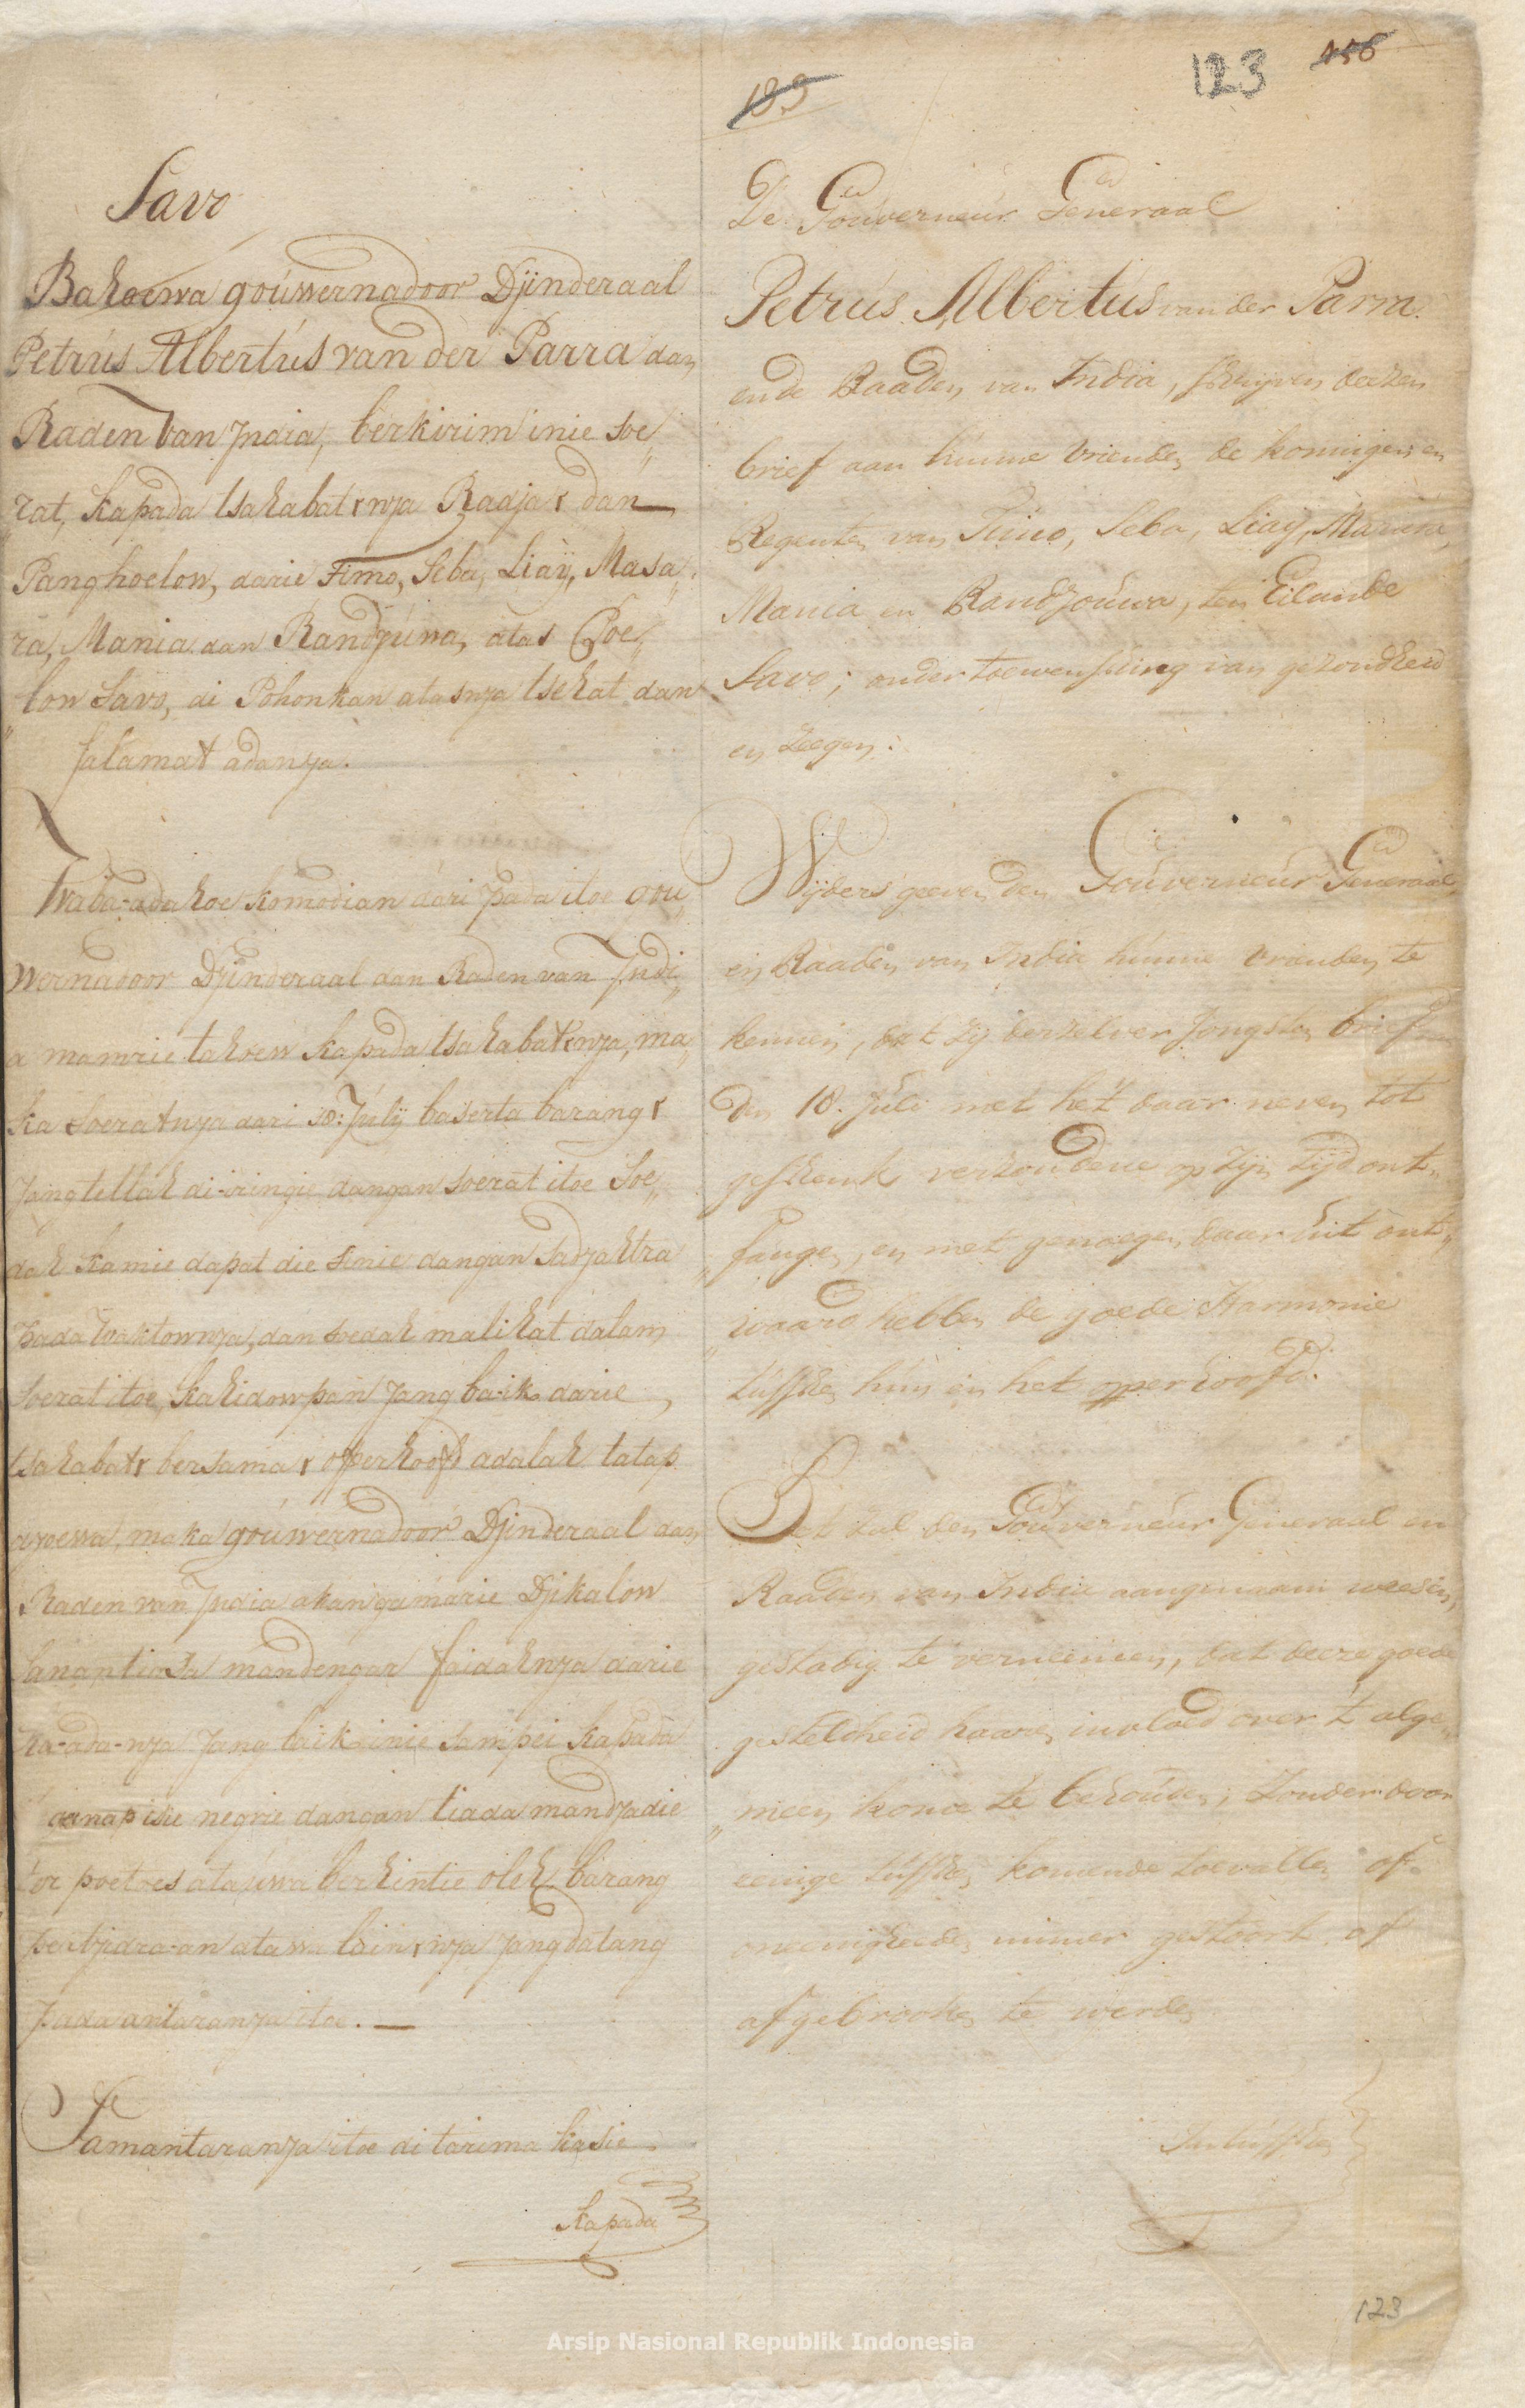 123
Savo
Bahoewa gouwernadoor Djinderaal
Petrus Albertus van der Parra dan
Raden van India, berkirim inie soe„
rat, kapada tsahabat2nja Raaja2 dan
Panghoelow, darie Timo, Seba, Liaÿ, Masa„
ra, Mania dan Randjúwa, atas Poe„
low Savo, di Pohonkan atasnja tsehat dan
salamat adanja.
komodian dari pada itoe gou„
wernadoor Djinderaal dan Raden van Indi„
a mamrie tahoew kapada tsahabat2nja, ma„
ka soeratnja dari 18: Julij baserta barang2
jang tellah di-iringie dangan soerat itoe soe„
dah kamie dapat die sinie dangan sadjahtra
pada waktownja, dan soedah malihat dalam
soerat itoe, kahidowpan jang ba-ik darie
tsahabat2 bersama2 opperhoofd adalah tatap
maka gouwernadoor Djinderaal dan
Raden van India akan gamarie Djikalow
sanantiasa mandengar faidahnja darie
ka-ada-nja jang baik inie sampei kapada
ganap isie negrie dangan tiada mandjadie
poetoes ataúwa berhintie oleh barang
atawa lain2nja jang datang
pada antaranja itoe. —
Samantaranja itoe di tarima kasie
kapada
De Gouverneur Generaal
Petrus Albertus van der Parra
ende Raaden van India, schrijven deezen
brief aan hunne vrienden de koningen en
Regenten van Timo, Seba, Liaij, Massara,
Mania en Randjouwa, ten Eilande
Savo; onder toewensching van gezondheid
en zeegen:
Wijders geeven den Gouverneur Generaal
en Raaden van India hunne vrienden te
kennen, dat zij derzelver jongsten brief van
den 18. Juli met het daar neven tot
geschenk verzondene op zijn tijd ont„
„fangen, en met genoegen daar uit ont„
„waard hebben de goede Harmonie
tusschen hun en het opperhoofd.
Het zal den Gouverneur Generaal en
Raaden van India aangenaam weesen,
gestadig te verneemen, dat deeze goede
gesteldheid haaren invloed over 't alge„
„meen kome te behouden; zonder door
eenige tusschen komende toevallen of
oneenigheeden immer gestoort of
afgebrooken te werden
Intusschen
123
Arsip Nasional Republik Indonesia